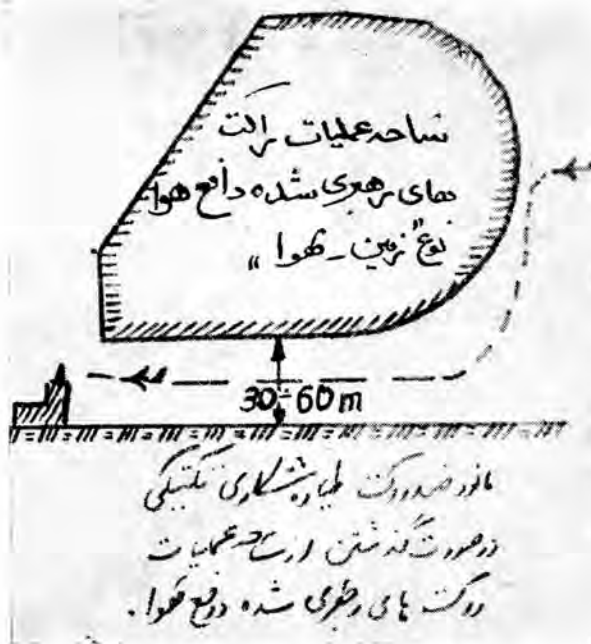 ساحه عملیات راکت
های رهبری شده دافع هوا
نوع "زمین - هوا"
30-60 m
مانور ضد راکت طیاره شکاری تکتیکی
در صورت گذشتن از ساحه عملیات
راکت های رهبری شده دافع هوا.